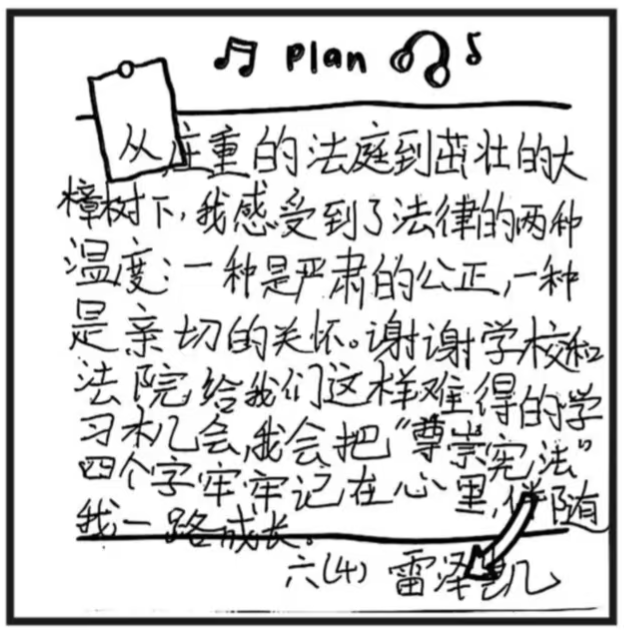 plan
从庄重的法庭到茁壮的大
樟树下,我感受到了法律的两种
温度:一种是严肃的公正,一种
是亲切的关怀。谢谢学校和
法院给我们这样难得的学
习机会,我会把“尊崇宪法”
四个字牢牢记在心里,伴随
我一路成长。
六(4) 雷泽凯